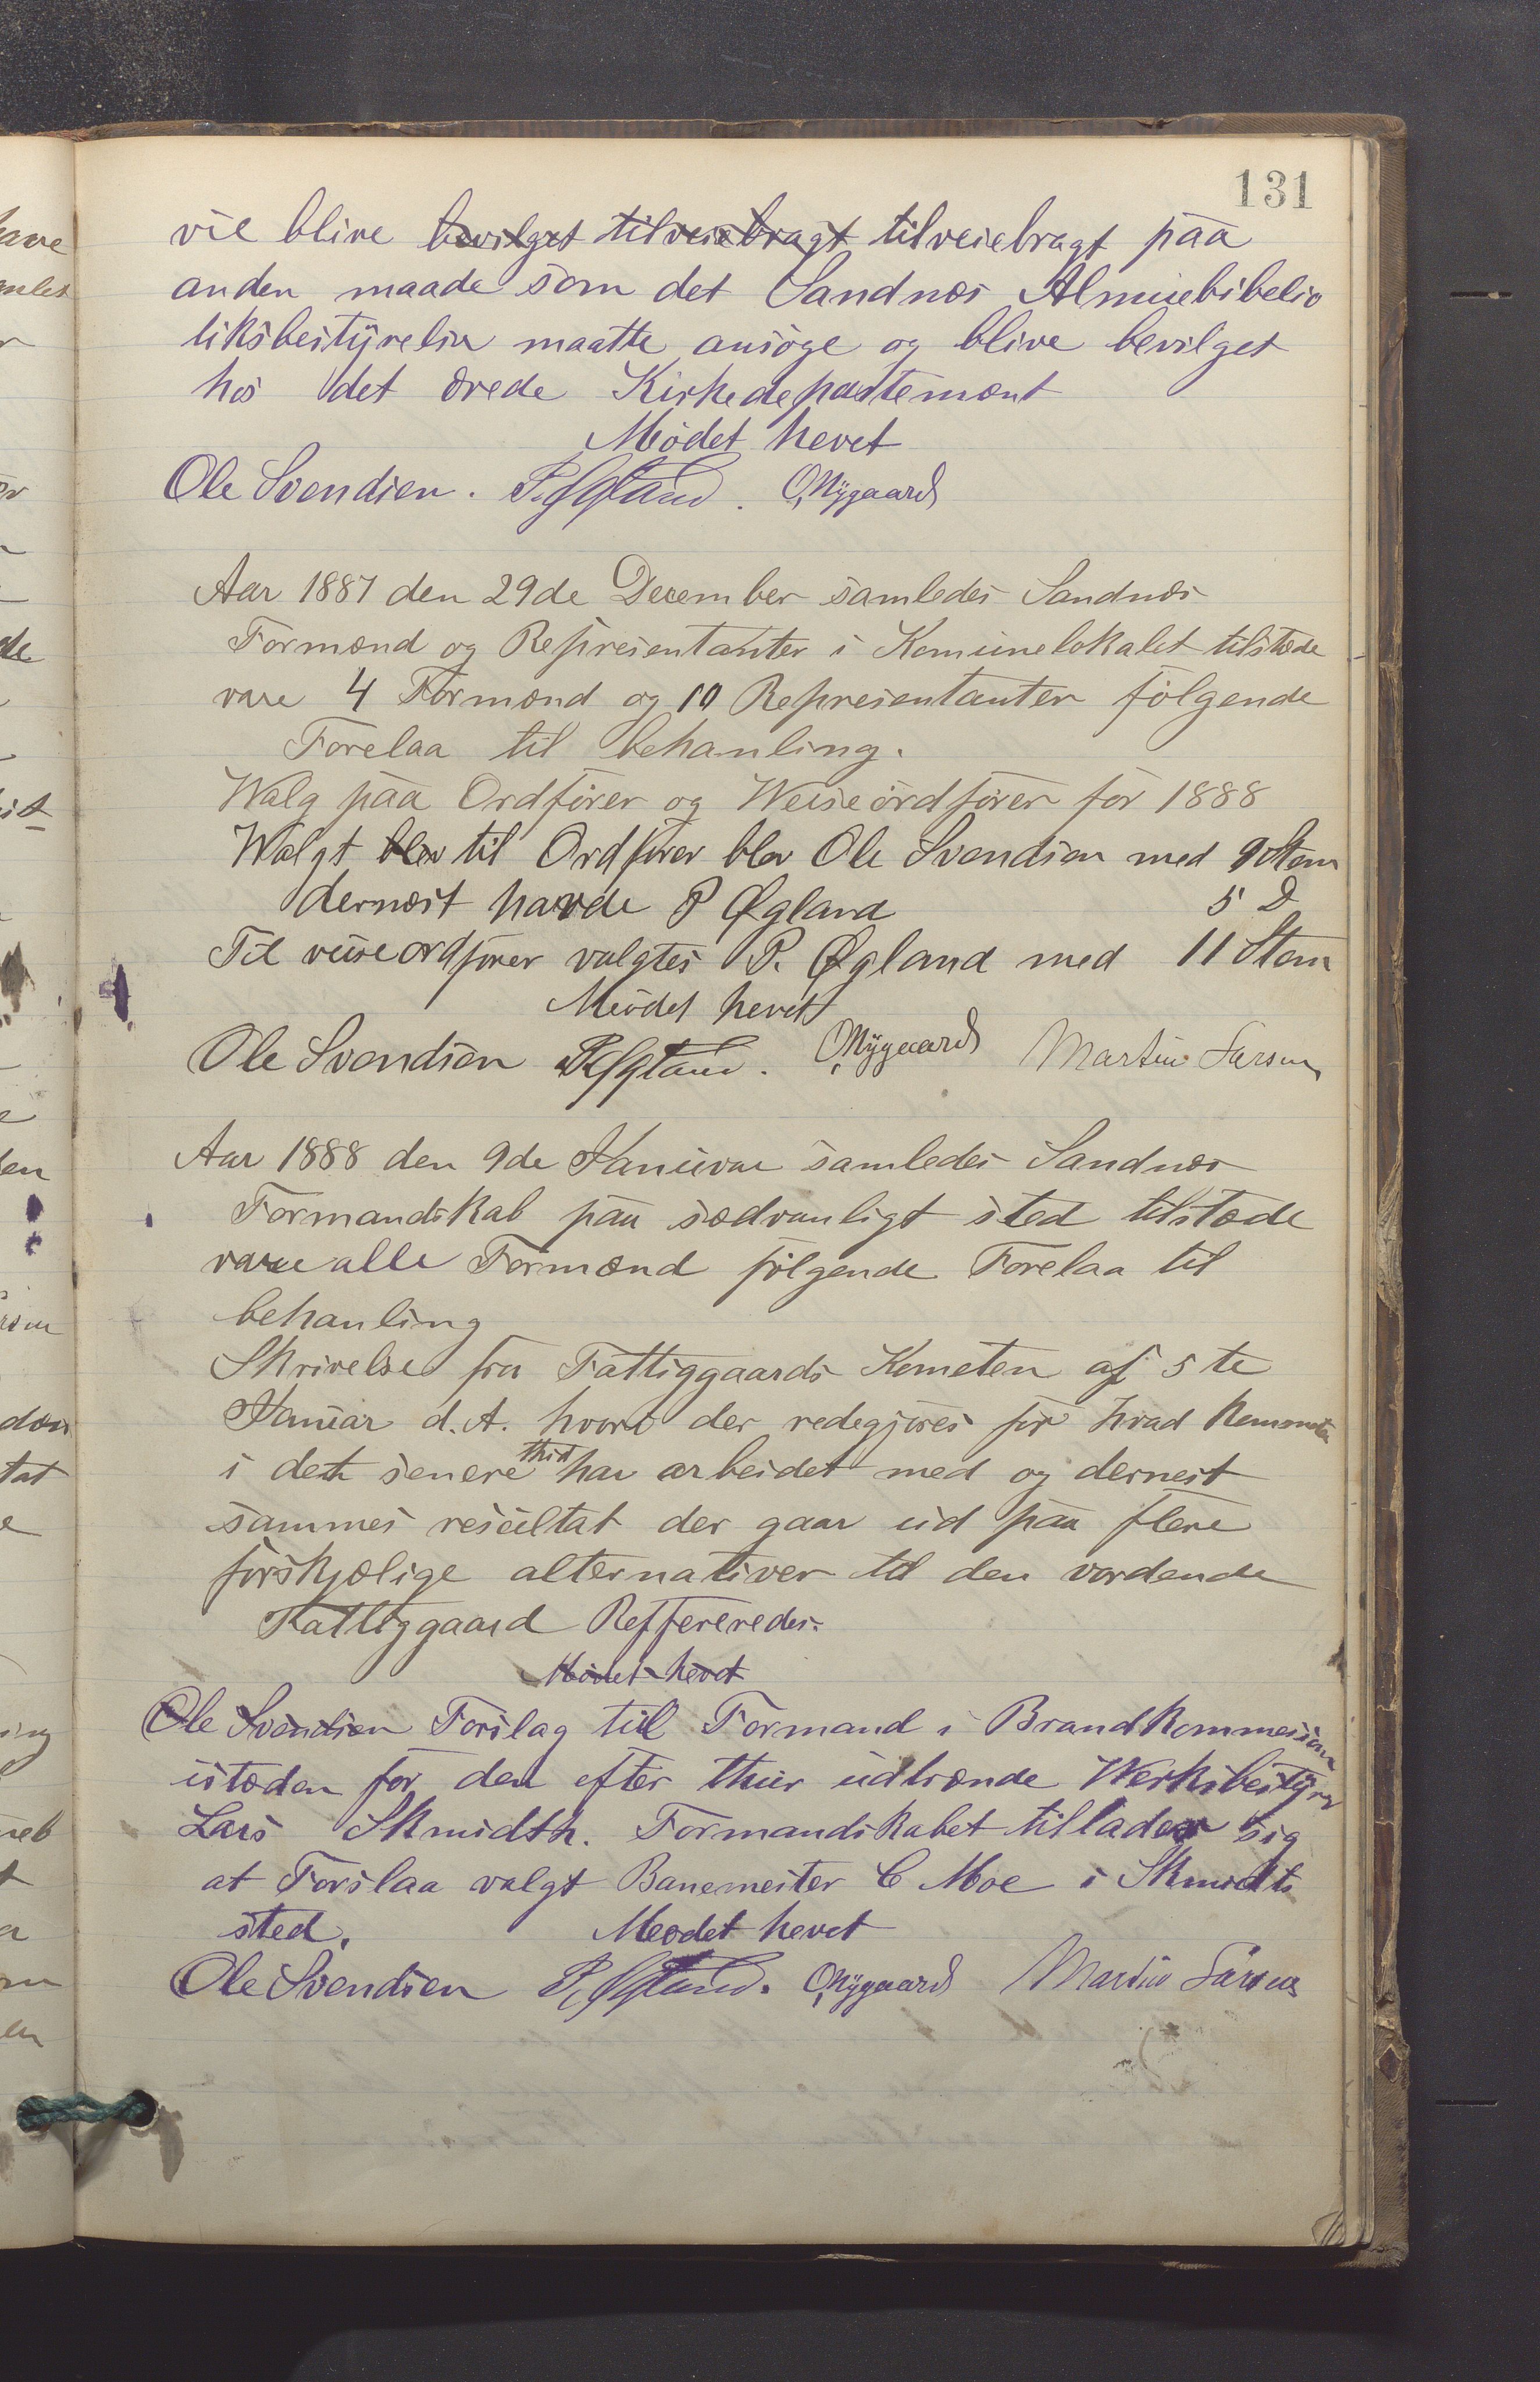 131
vil blive bevilget tilveiebragt tilveiebragt paa
anden maade som det Sandnæs Almuebibelio
tiksbestyrelse maatte ansøge og blive bevilget
hos det ærede Kirkedepartemænt
Mødet hevet
Ole Svendsen. P. Øgland. O Nygaard
Aar 1887 den 29de December samledes Sandnæs
Formænd og Represientanter i Komunelokalet tilstæde
vare 4 Formænd og 10 Represientanter følgende
Forelaa til behanling.
Walg paa Ordfører og Weiseordfører for 1888
Walgt blev til Ordfører blev Ole Svendsen med 9 Stem
dernæst havde P Øgland 5 D
Til viseordfører valgtes P. Øgland med 11 Stem
Mødet hevet
Ole Svendsen P Øgland. O Nygaard Martin Larsen
Aar 1888 den 9de Januvar samledes Sandnæs
Formandskab paa sædvanligt sted tilstæde
vare alle Formænd følgende Forelaa til
behanling
Skrivelse fra Fattiggaards Kometen af 5te
Januar d.A. hvori der redegjøres for hvad Kommeten
i den senere thid har arbeidet med og dernest
sammes resultat der gaar ud paa flere
forskjælige alternativer til den vordende
Fattiggaard Reffereredes.
Mødet hevet
Ole Svendsen Forslag til Formand i Brandkommesion
istæden for den efter thur udtrænde Werksbestyrer
Lars Skmidth. Formandskabet tillader sig
at Forslaa valgt Banemester C Moe i Skmidts
sted. Meodet hevet
Ole Svendsen P. Øgland. O Nygaard Martin Larsen